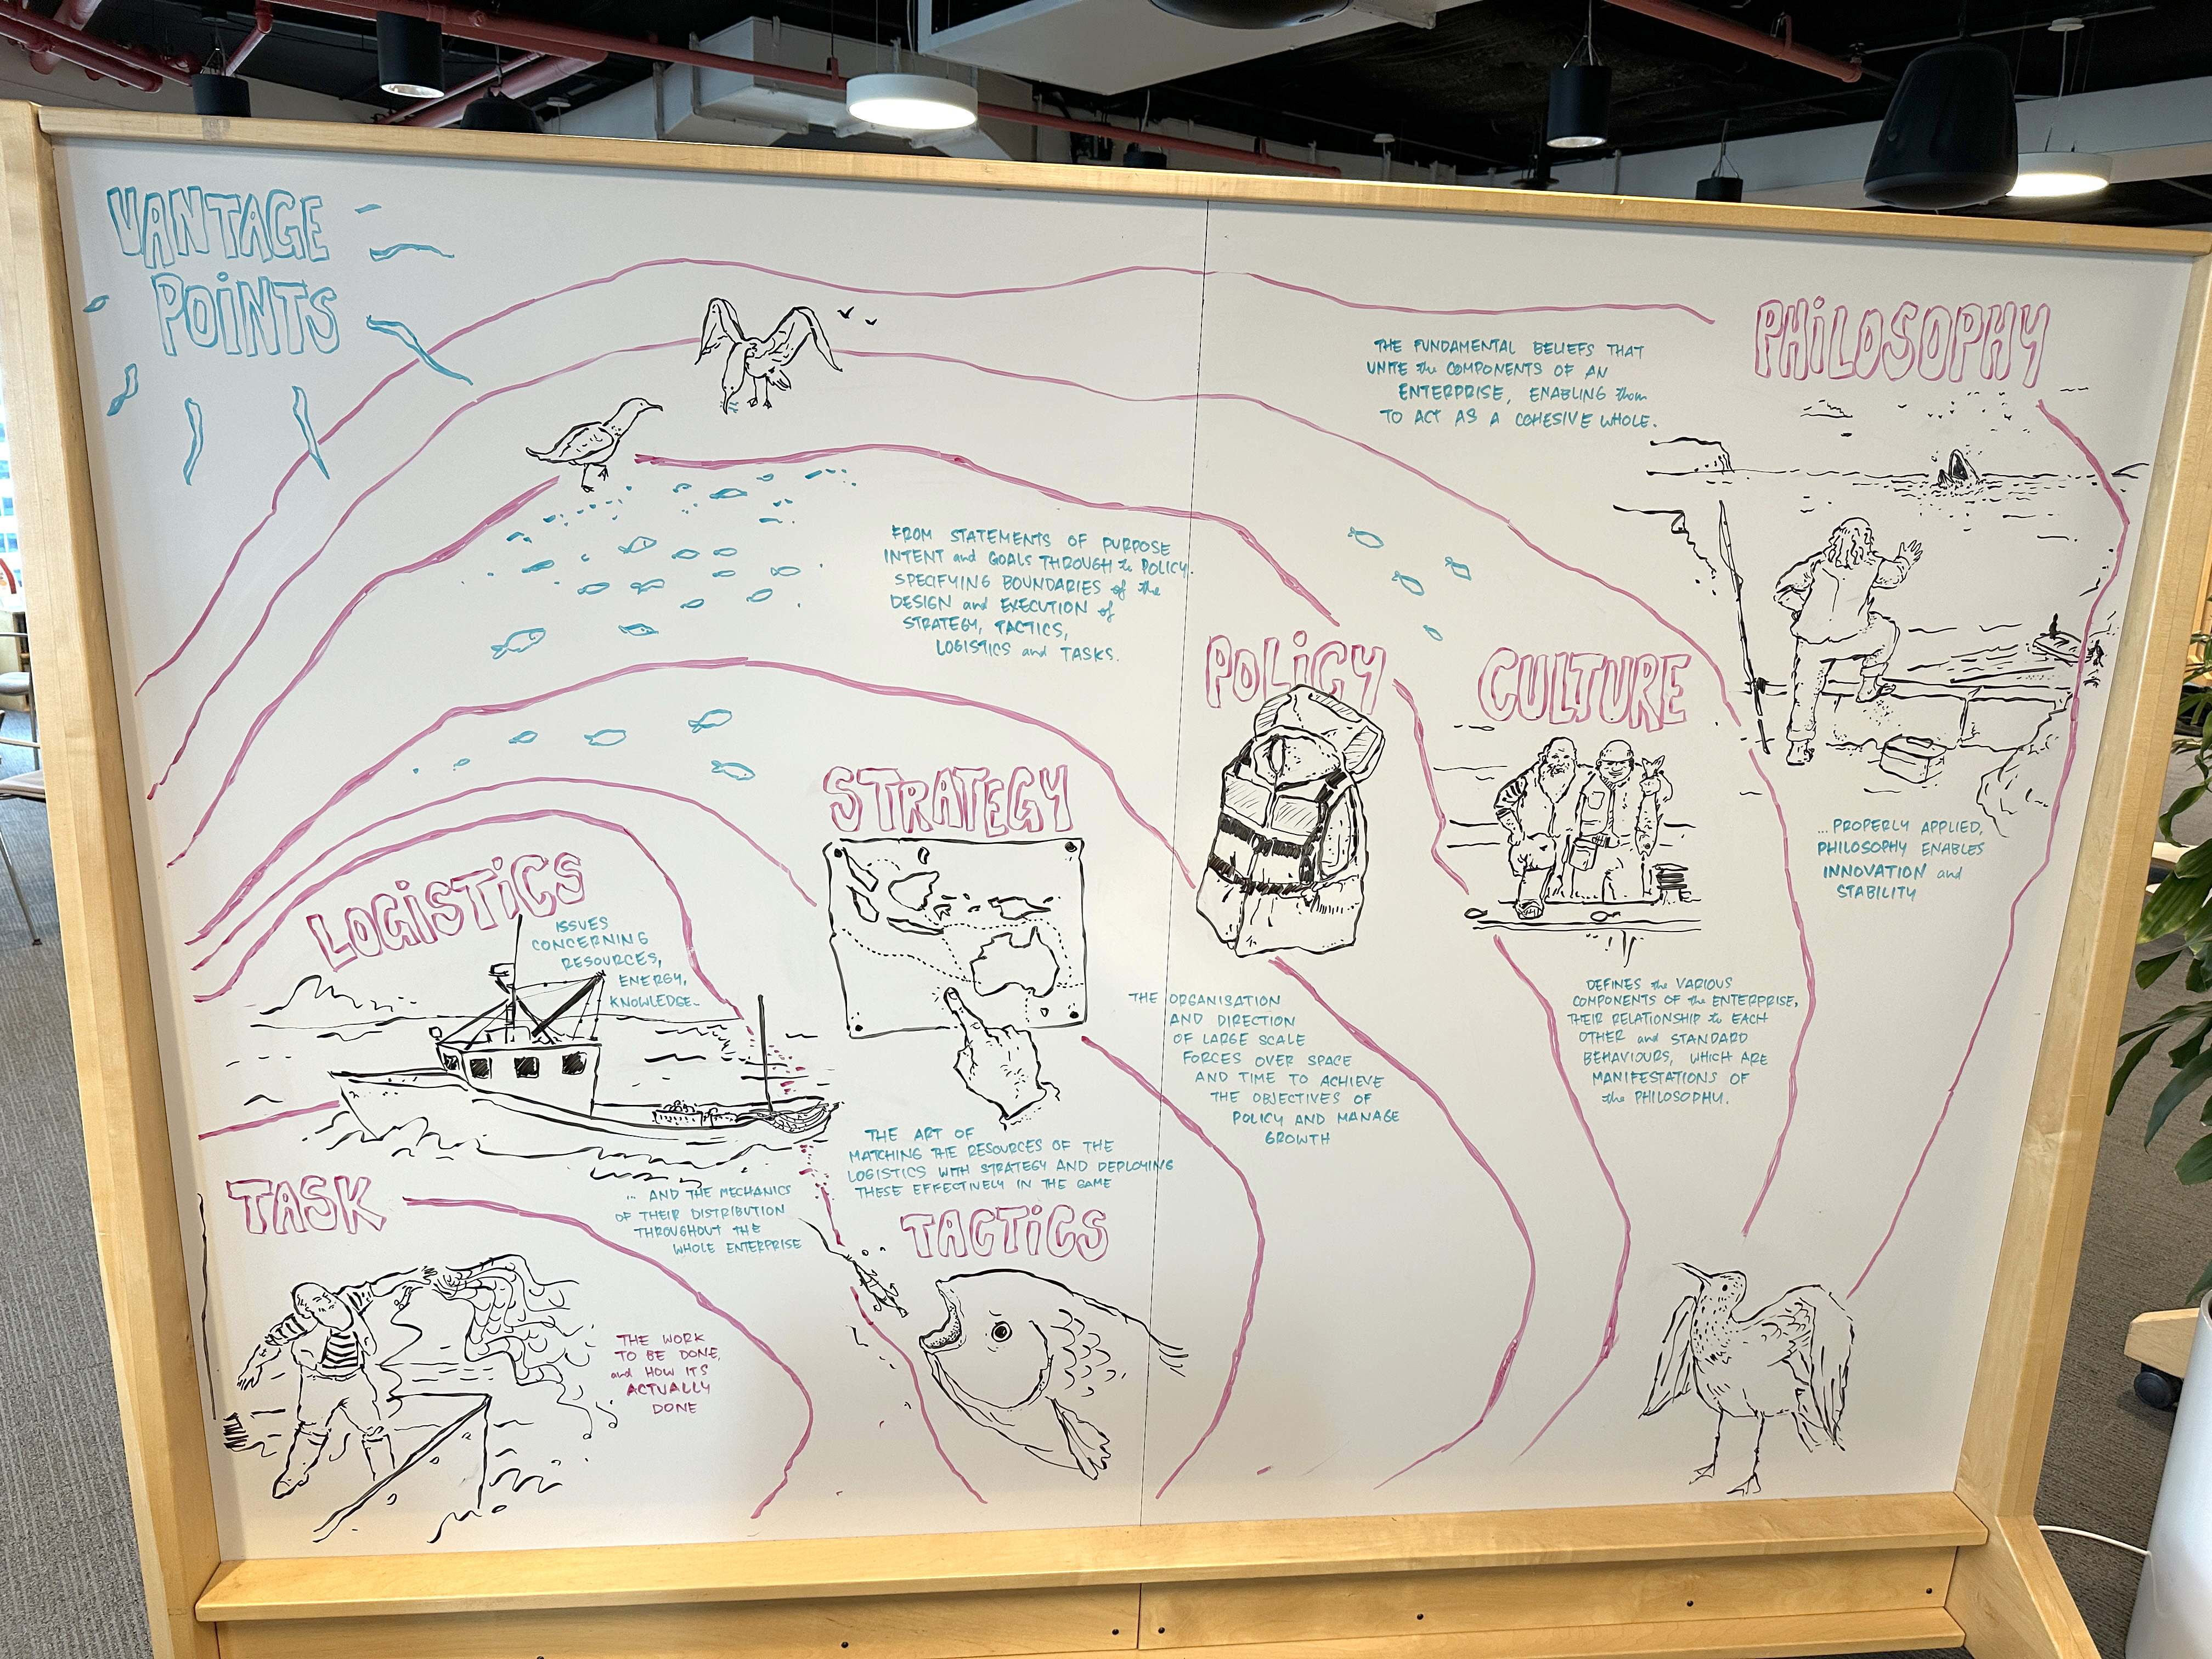 VANTAGE
POINTS
PHILOSOPHY
THE FUNDAMENTAL BELIEFS THAT
UNITE the COMPONENTS OF AN
ENTERPRISE, ENABLING them
TO ACT AS A COHESIVE WHOLE.
... PROPERLY APPLIED,
PHILOSOPHY ENABLES
INNOVATION and
STABILITY
CULTURE
DEFINES the VARIOUS
COMPONENTS OF the ENTERPRISE,
THEIR RELATIONSHIP to EACH
OTHER and STANDARD
BEHAVIOURS, WHICH ARE
MANIFESTATIONS OF
the PHILOSOPHY.
POLICY
FROM STATEMENTS OF PURPOSE
INTENT and GOALS THROUGH to POLICY.
SPECIFYING BOUNDARIES of the
DESIGN and EXECUTION of
STRATEGY, TACTICS,
LOGISTICS and TASKS.
STRATEGY
THE ORGANISATION
AND DIRECTION
OF LARGE SCALE
FORCES OVER SPACE
AND TIME TO ACHIEVE
THE OBJECTIVES OF
POLICY AND MANAGE
GROWTH
THE ART OF
MATCHING THE RESOURCES OF THE
LOGISTICS WITH STRATEGY AND DEPLOYING
THESE EFFECTIVELY IN THE GAME
TACTICS
LOGISTICS
ISSUES
CONCERNING
RESOURCES,
ENERGY,
KNOWLEDGE..
... AND THE MECHANICS
OF THEIR DISTRIBUTION
THROUGHOUT THE
WHOLE ENTERPRISE
TASK
THE WORK
TO BE DONE,
and HOW ITS
ACTUALLY
DONE